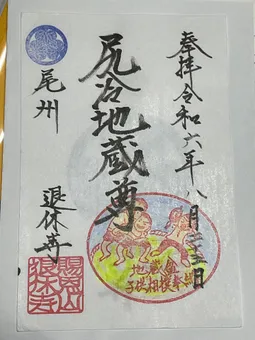 奉拝 令和六年八月二十三日
尻冷地蔵尊
尾州
退休寺
地蔵盆
子供相撲奉納